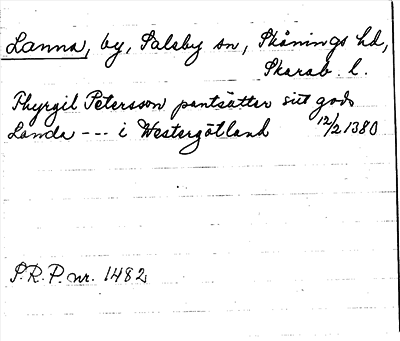 Lanna, by, Saleby sn, Skånings hd,
Skarab. l.
Thyrgil Petersson pantsätter sitt gods
Landa --- i Westergötland 12/2 1380
S.R.P. nr. 1482